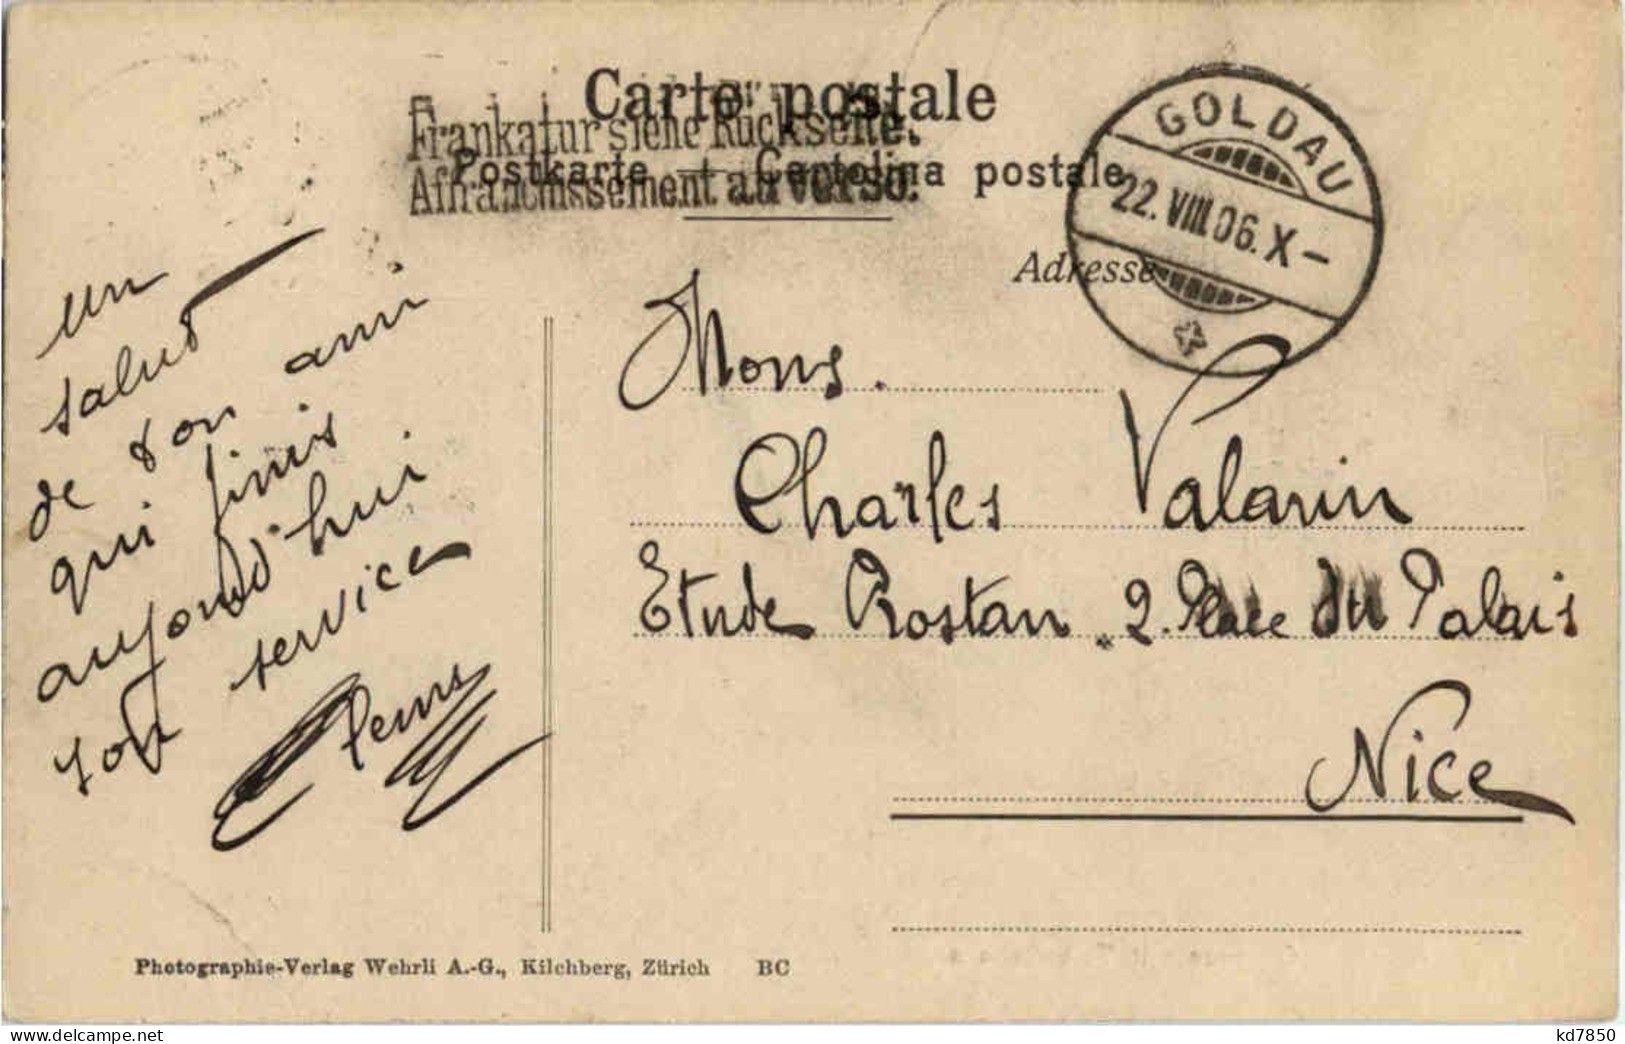 Carte postale
Frankatur siehe Rückseite.
Postkarte — Cartolina postale
Affranchissement au verso.
GOLDAU
22. VIII. 06. X –
Adresse
un
salut
de ton ami
qui finis
aujourd'hui
son service
Clems
Mons.
Charles Valarin
Etude Rostan 2. Place du Palais
Nice
Photographie-Verlag Wehrli A.-G., Kilchberg, Zürich BC
www.delcampe.net
kd7850